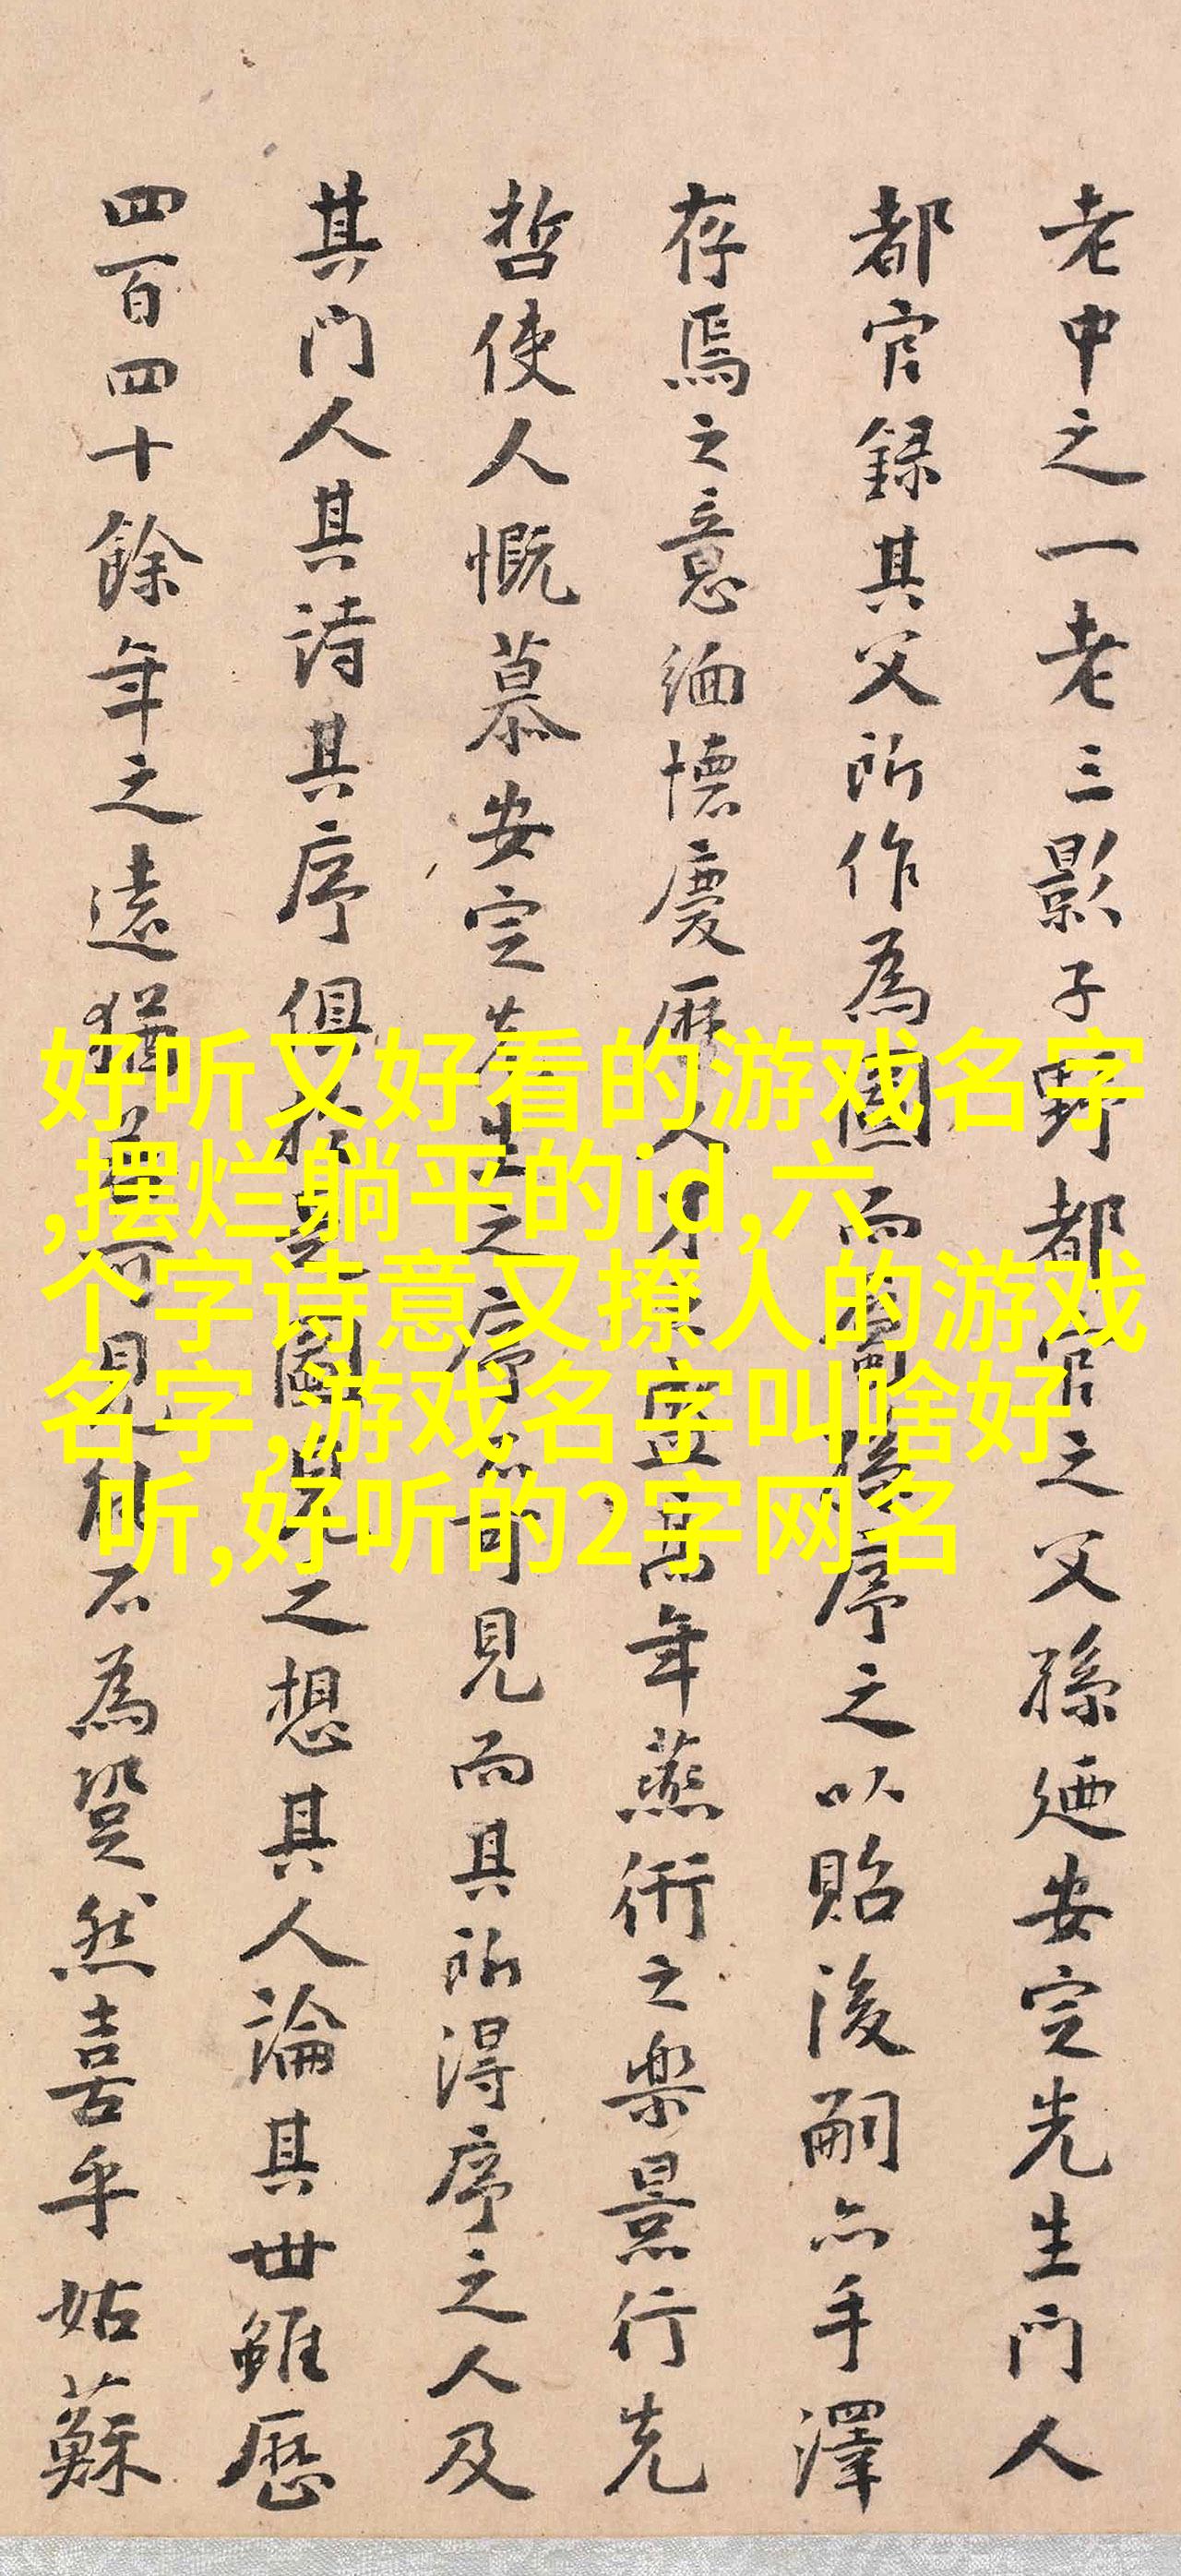 老中之一老三影子野都官之父孫廼安定先生門人
都官録其父所作為圖而孫序之以貽後嗣亦手澤
存焉之意緬懷慶曆人才之盛高年燕衎之樂景行先
哲使人慨慕安定先生之序不可見而其所得序之人及
其門人其詩其序俱於是圖見之想其人論其世雖歷
四百四十餘年之遠猶可見能不為跫然喜乎姑蘇
好听又好看的游戏名字
,摆烂躺平的id,六
个字诗意又撩人的游戏
名字,游戏名字叫啥好
听,好听的2字网名